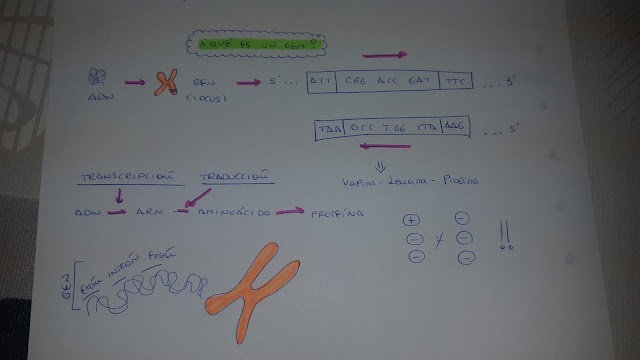 ¿QUÉ ES UN GEN?
ADN
GEN
(LOCUS)
5' ... ATT CGG ACC GAT TTC ... 3'
TAA GCC TGG CTA AAG ... 5'
Valina - Leucina - Prolina
TRANSCRIPCIÓN TRADUCCIÓN
ADN ARN AMINOÁCIDO PROTEÍNA
+ -
- ≠ -
- -
!!
GEN
EXÓN INTRÓN EXÓN